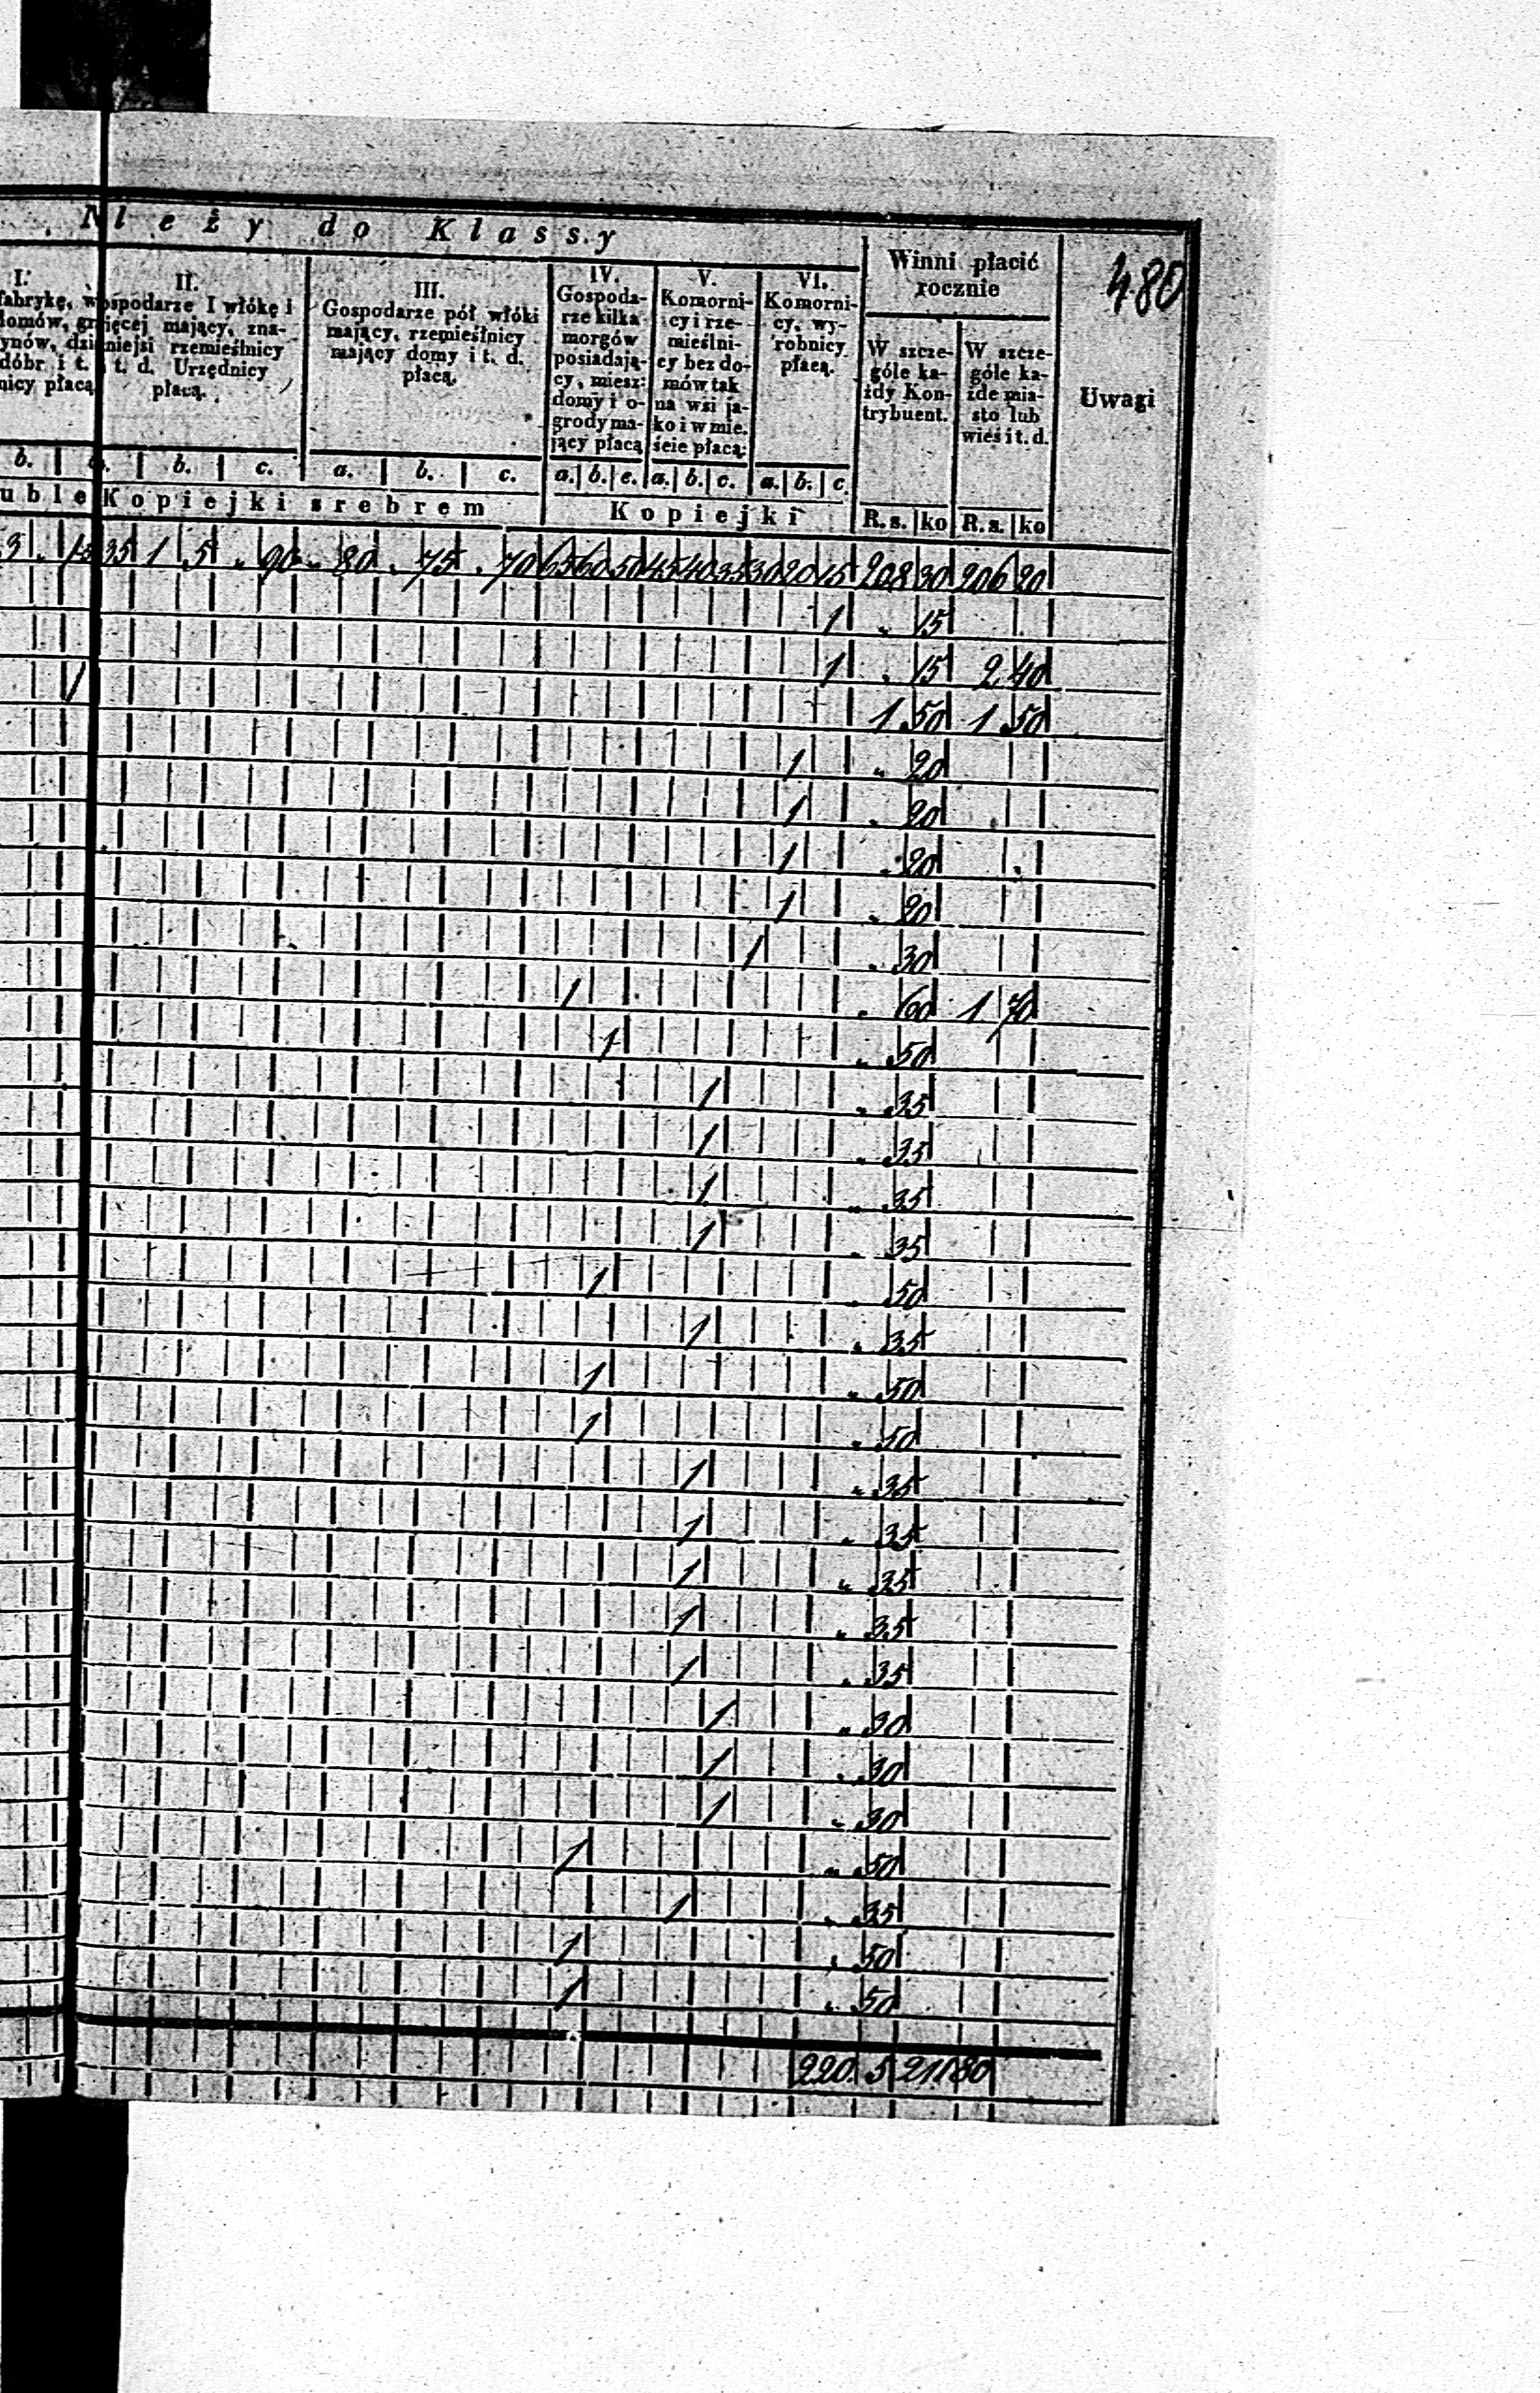 Należy do Klassy
Winni płacić
rocznie
480
I.
fabrykę, w
domów, gr
ynów, dzie
dóbr i t.
nicy płacą
II.
ospodarze I włókę i
ięcej mający, zna-
niejsi rzemieślnicy
t. d. Urzędnicy
płacą.
III.
Gospodarze pół włóki
mający, rzemieślnicy
mający domy i t. d.
płacą.
IV.
Gospoda-
rze kilka
morgów
posiadają-
cy, miesz:
domy i o-
grody ma-
jący płacą
V.
Komorni-
cy i rze-
mieślni-
cy bez do-
mów tak
na wsi ja-
ko i w mie.
ście płacą:
VI.
Komorni-
cy, wy-
robnicy
płacą.
W szcze-
góle ka-
żdy Kon-
trybuent.
W szcze-
góle ka-
żde mia-
sto lub
wieś i t. d.
Uwagi
b. b. c. a. b. c. a. b. c. a. b. c. a. b. c.
uble Kopiejki srebrem Kopiejki R.s. ko R.s. ko
3 . 1 35 1 5 " 90 " 80 . 75 . 70 65 60 50 45 40 35 30 20 15 208 30 206 20
1 " 15
1 " 15 2 40
1 1 50 1 50
1 " 20
1 " 20
1 " 20
1 " 20
1 " 30
1 " 60 1 70
1 " 50
1 " 35
1 " 35
1 " 35
1 " 35
1 " 50
1 " 35
1 " 50
1 " 50
1 " 35
1 " 35
1 " 35
1 " 35
1 " 35
1 " 30
1 " 30
1 " 30
1 " 50
1 " 35
1 " 50
1 " 50
220 5 211 80